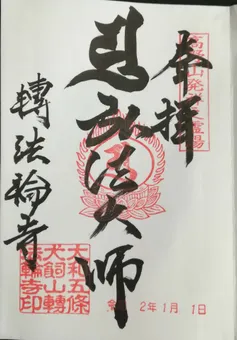 高野山発祥之霊場
奉拝
弘法大師
轉法輪寺
大和五條
犬飼山轉
法輪寺印
2年1月1日